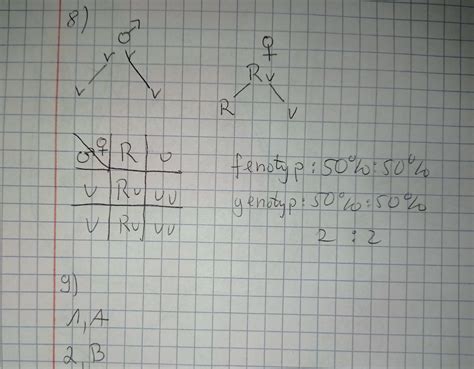 8)
♂ ♀
v v Rv
v v R v
♂ ♀ R v
v Rv vv
v Rv vv
fenotyp: 50%: 50%
genotyp: 50%: 50%
2 : 2
9)
1, A
2, B